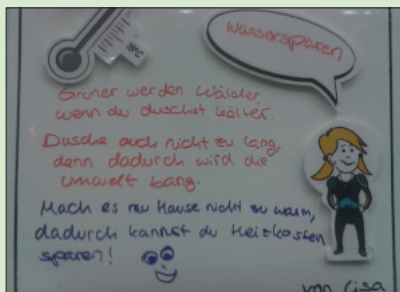 18°C
wassersparen
Grüner werden Wälder
wenn du duschst kälter.
Dusche auch nicht zu lang,
denn dadurch wird die
Umwelt bang.
Mach es zu Hause nicht zu warm,
dadurch kannst du Heizkosten
sparen!
von Lisa